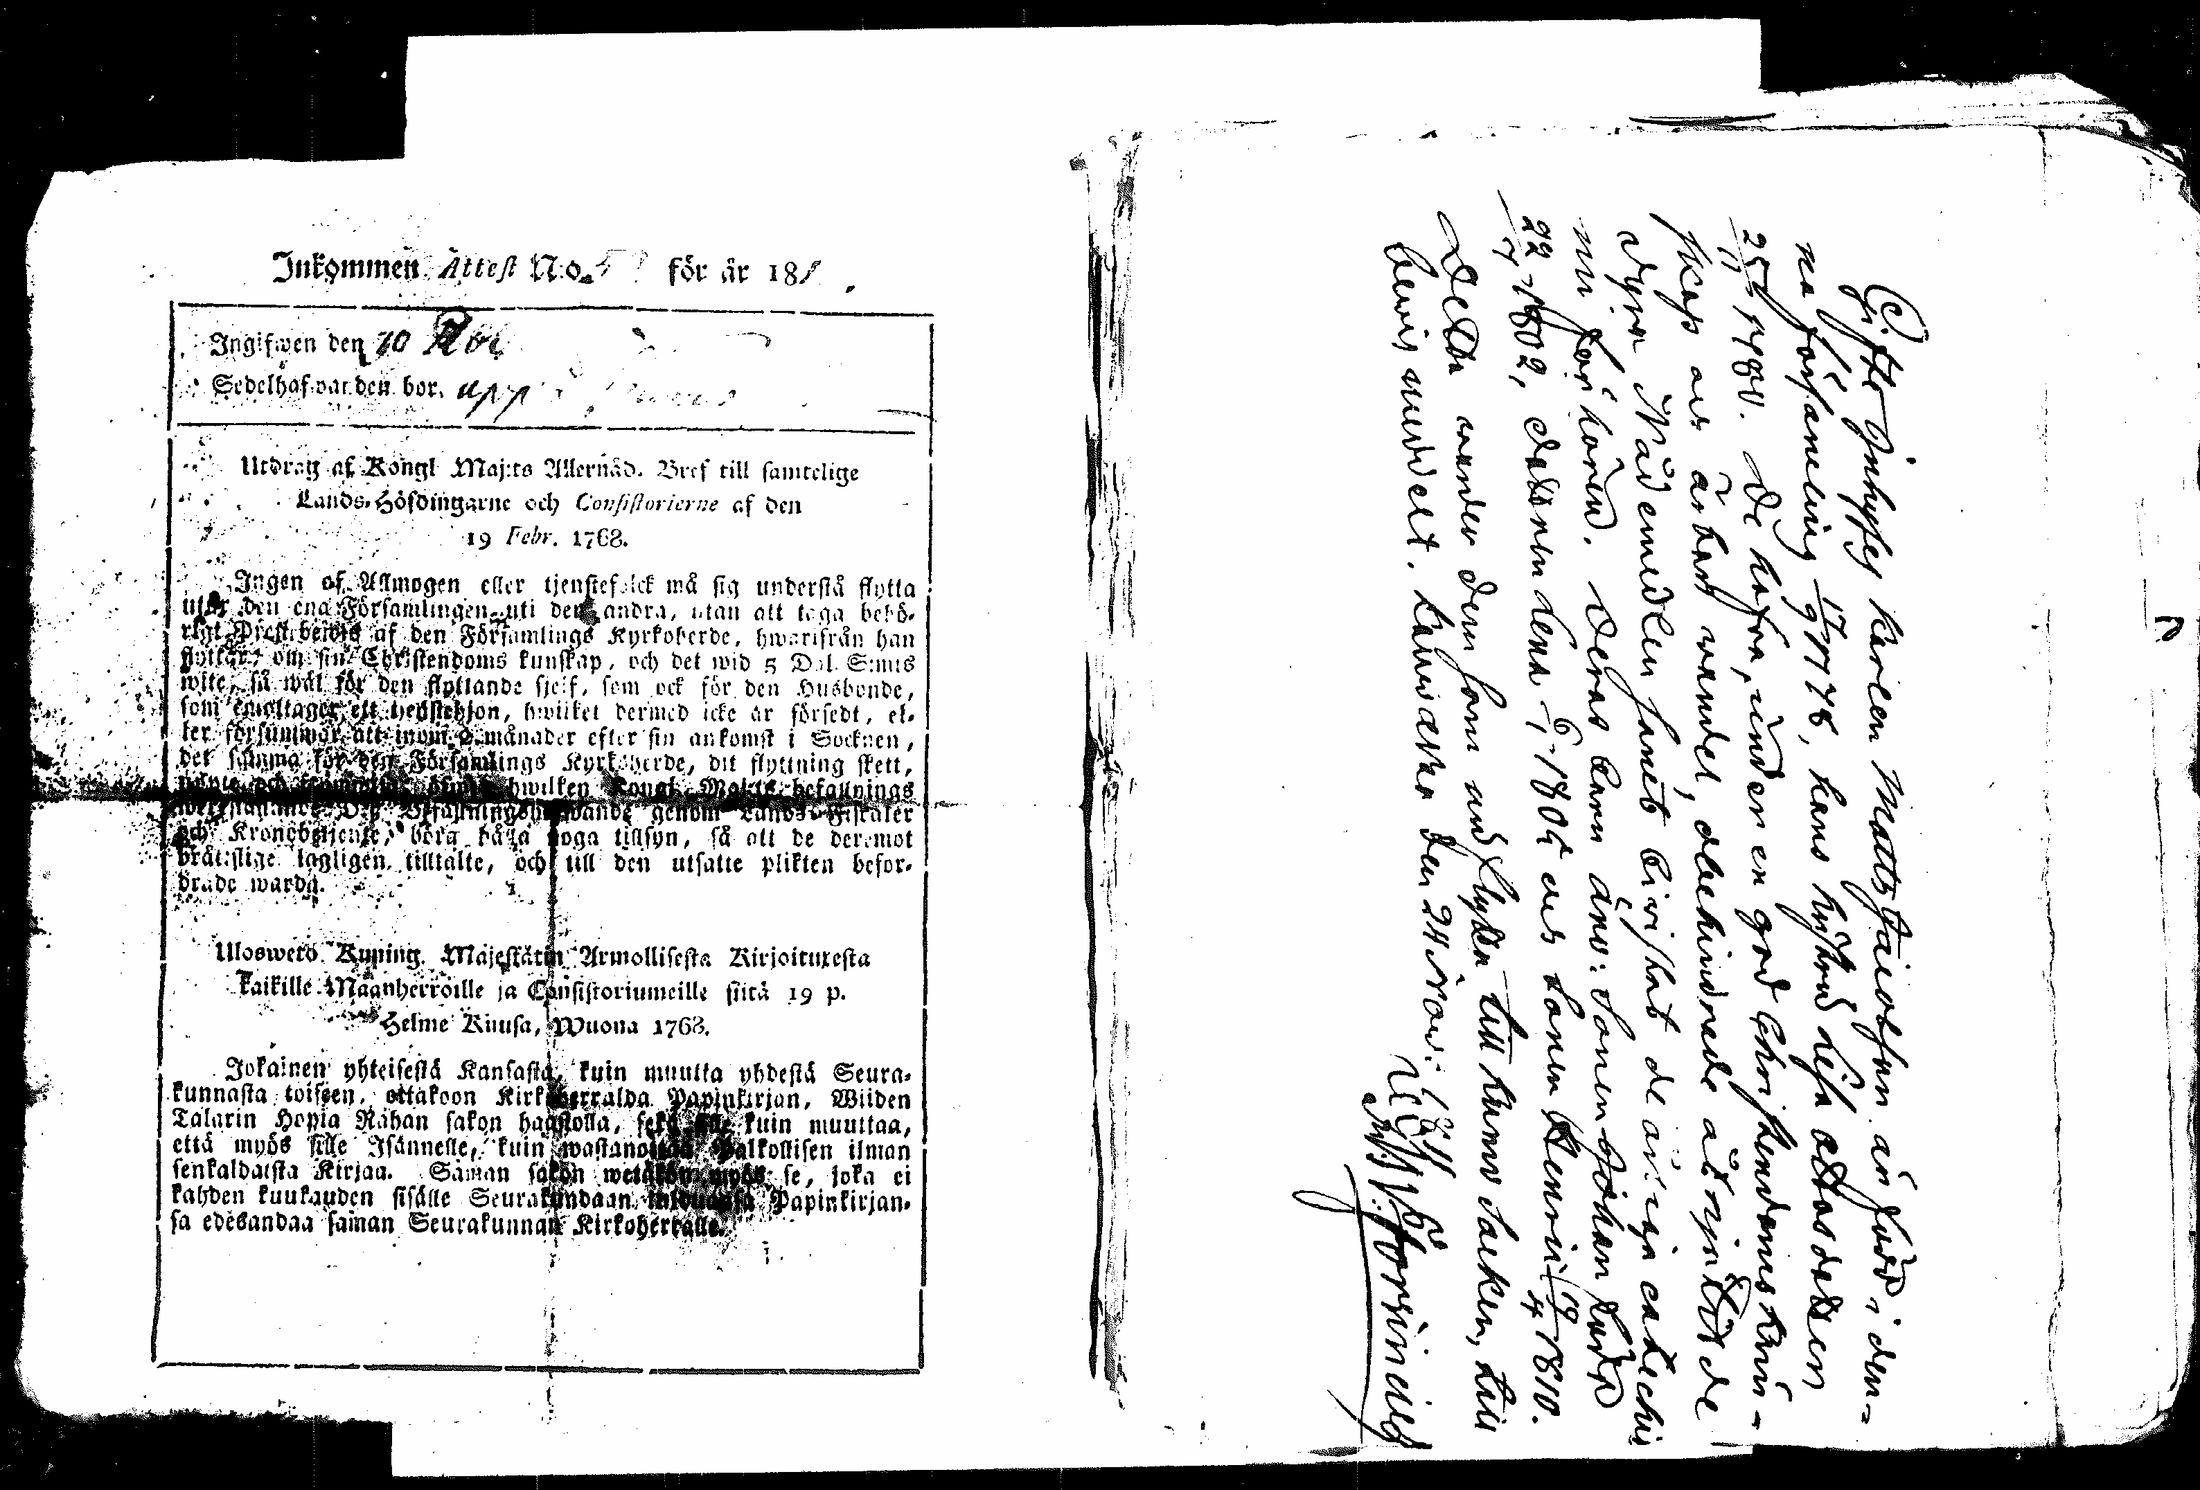 Inkommen Attest N:o 5 för år 181
Ingifwen den 10
Sedelhafwanden bor. upp
Utdrag af Kongl Maj:ts Allernåd. Bref till samtelige
Lands-Höfdingarne och Consistorierne af den
19 Febr. 1768.
Ingen af Allmogen eller tjenstefolck må sig understå flytta
utur den ena Församlingen uti den andra, utan att taga behö-
rigt Prestebewis af den Församlings Kyrkoherde, hwarifrån han
flyttar, om sin Christendoms kunskap, och det wid 5 Dal. S:mts
wite, så wäl för den flyttande sjelf, som ock för den Husbonde,
som emottager ett tjenstehjon, hwilket dermed icke är försedt, el-
ler försummar att inom 2 månader efter sin ankomst i Socknen,
det samma för den Församlings Kyrkoherde, dit flyttning skett,
hwilken Kongl. Maj:ts befallnings
werkställande Dess Befallningshafwande genom Lands-Fiskaler
och Kronobetjente, böra hålla noga tillsyn, så att de deremot
brättslige lagligen tilltalte, och till den utsatte plikten befor-
drade warda.
Uloswero Kuning. Majestätin Armollisesta Kirjoituxesta
kaikille Maanherroille ja Consistoriumeille siitä 19 p.
Helme Kuusa, Wuona 1768.
Jokainen yhteisestä Kansasta, kuin muutta yhdestä Seura-
kunnasta toiseen, ottakoon Kirkoherralda Papinkirjan, Wiiden
Talarin Hopia Rahan sakon haastolla, sekä sille kuin muuttaa,
että myös sille Isännelle, kuin wastanottaa Palkollisen ilman
senkaldaista Kirjaa. Saman sakon wetäkön myös se, joka ei
kahden kuukauden sisälle Seurakundaan tulduansa Papinkirjan-
sa edesandaa saman Seurakunnan Kirkoherralle.
Gifte Inhyses Karlen Matts är född i den-
na församling 17/9 1778, hans hustru Lisa
25/11 1780. De hafva, under en god Christendoms kun-
skap och ärbar wandel, obehindrade åtnjutit de
dyra Nådemedlen samt bivistat de årliga catechis
mi förhören. Deras barn äro: Sonen Johan född
22/7 1802, dottren Lena 6/1 1805 och Sonen Henric 19/4 1810.
Detta under dem som nu flytta till Kumo Socken, till
bewis meddelt. den 24 Nov: